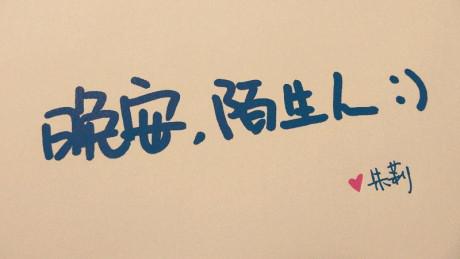 晚安,陌生人:)
♥朱莉